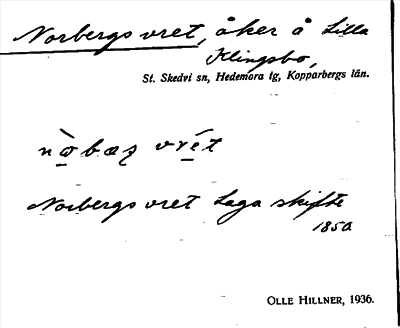 Norbergs vret, åker å Lilla
Klingsbo,
St. Skedvi sn, Hedemora tg, Kopparbergs län.
vrét
Norbergs vret Laga skifte
1850
OLLE HILLNER, 1936.